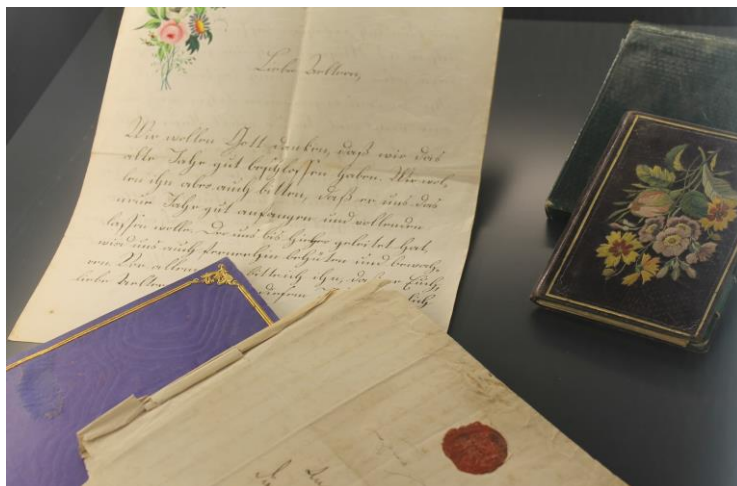 Liebe Aeltern,
Wir wollen Gott danken, daß wir das
alte Jahr gut beschlossen haben. Wir wol-
len ihn aber auch bitten, daß er uns das
neue Jahr gut anfangen und vollenden
lassen wolle. Der uns bis hieher geleitet hat,
wird uns auch fernerhin behüten und bewah-
ren. Vor allem bitte ich ihn, daß er Euch,
liebe Aeltern diesem lich